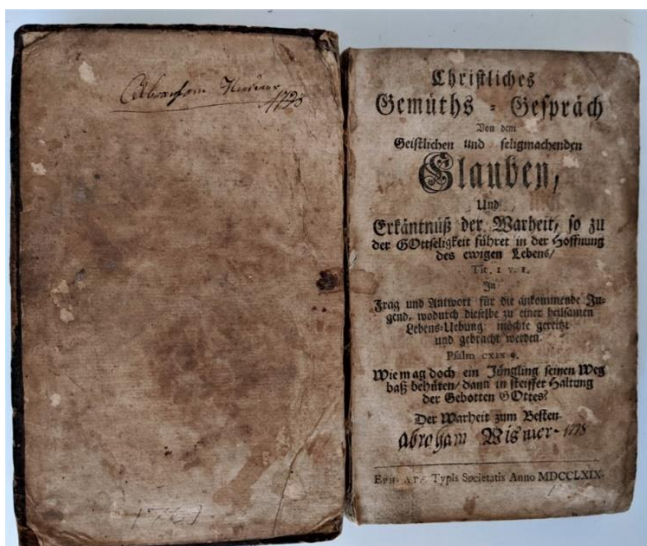 1793
Christliches
Gemüths-Gespräch
Von dem
Geistlichen und seligmachenden
Glauben,
Und
Erkäntnüß der Warheit, so zu
der GOttseligkeit führet in der Hoffnung
des ewigen Lebens/
Tit. 1 v. 1.
In
Frag und Antwort für die ankommende Ju-
gend, wodurch dieselbe zu einer heilsamen
Lebens-Uebung möchte gereitzt
und gebracht werden.
Psalm CXIX 9.
Wie mag doch ein Jüngling seinen Weg
baß behüten/ dann in steiffer Haltung
der Gebotten GOttes?
Der Warheit zum Besten
abraham Wismer 1778
EPHRATÆ Typis Societatis Anno MDCCLXIX.